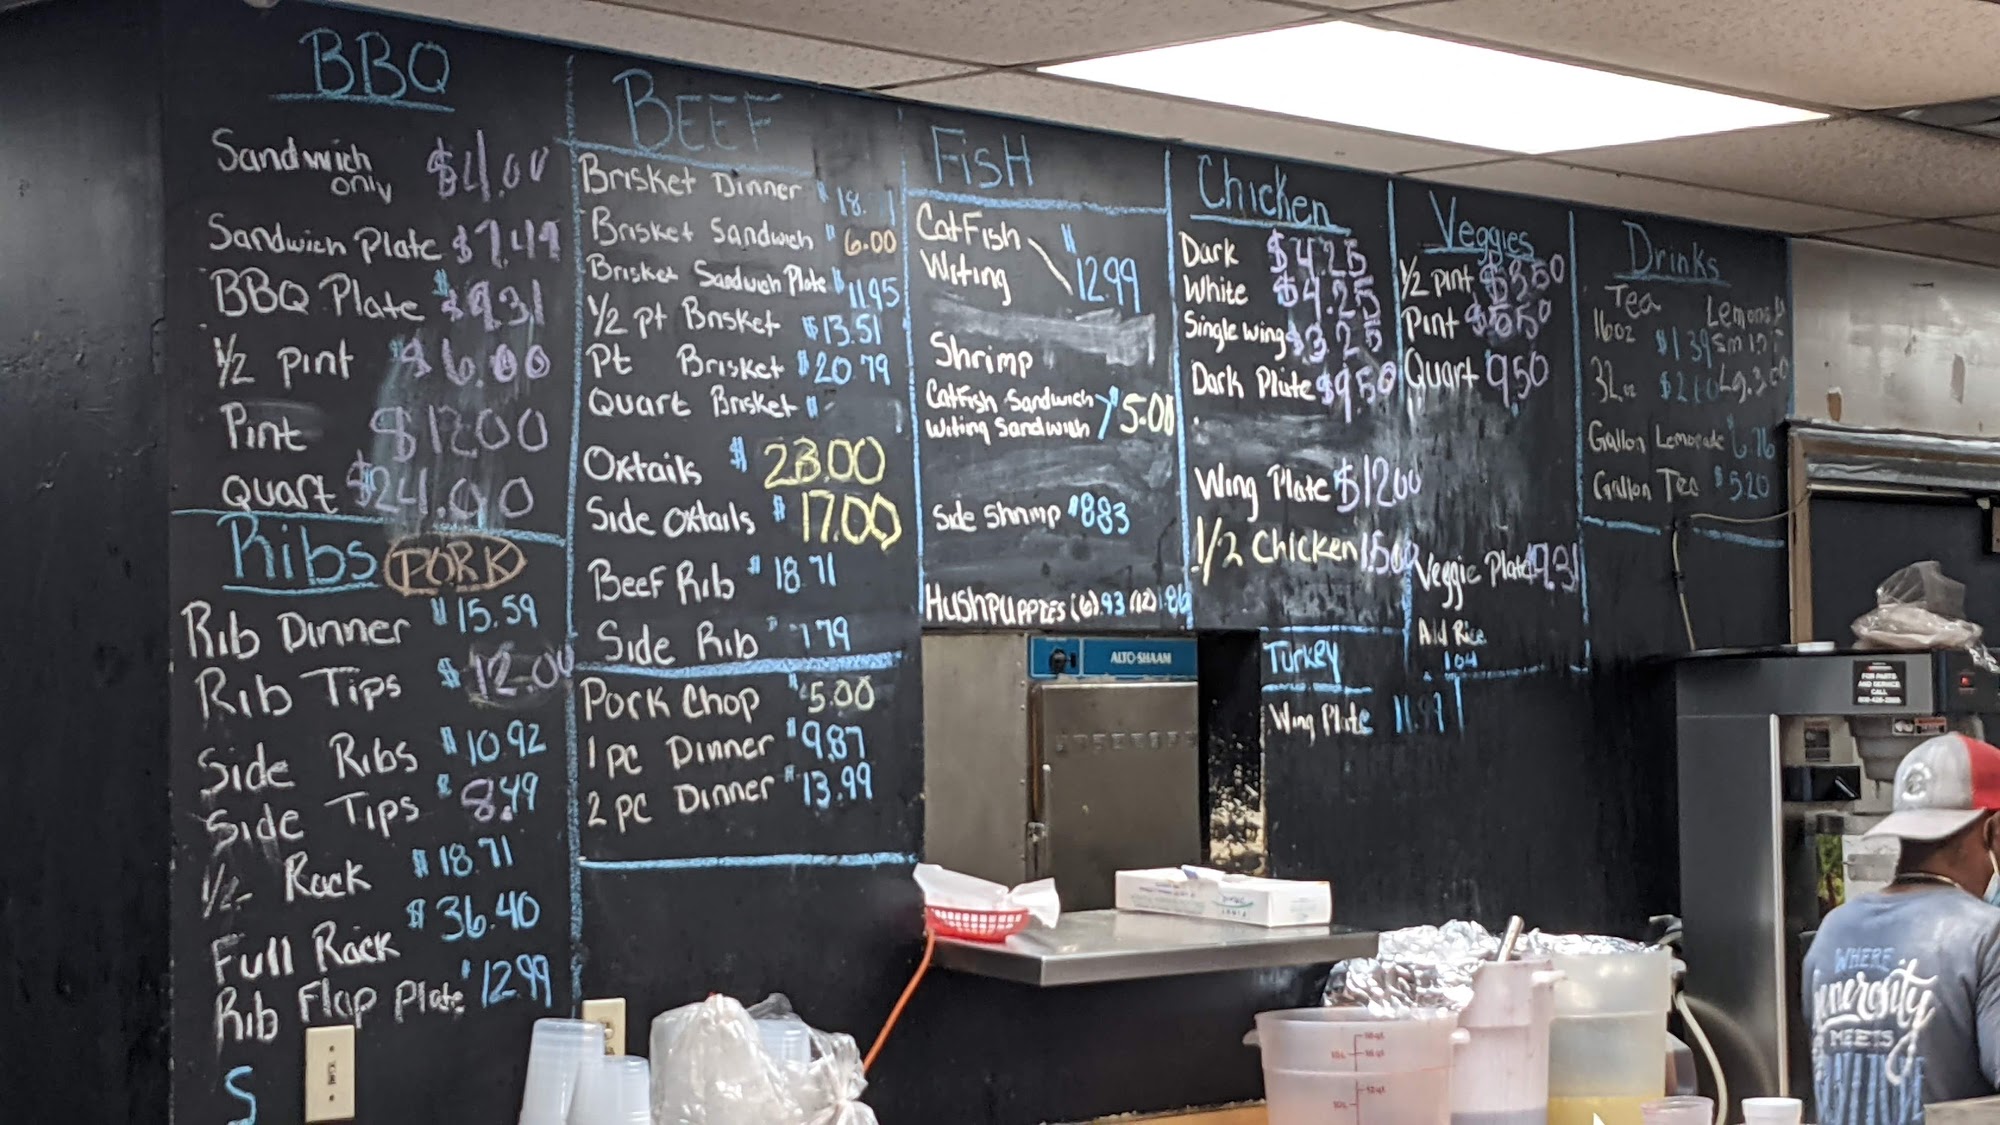 BBQ
Sandwich only $4.00
Sandwich Plate $7.49
BBQ Plate $9.31
1/2 pint $6.00
Pint $12.00
Quart $24.00
Ribs PORK
Rib Dinner $15.59
Rib Tips $12.00
Side Ribs $10.92
Side Tips $8.49
1/2 Rack $18.71
Full Rack $36.40
Rib Flap Plate $12.99
S
BEEF
Brisket Dinner $18.71
Brisket Sandwich $6.00
Brisket Sandwich Plate $11.95
1/2 pt Brisket $13.51
Pt Brisket $20.79
Quart Brisket $
Oxtails $23.00
Side Oxtails $17.00
Beef Rib $18.71
Side Rib $7.79
Pork Chop $5.00
1 pc Dinner $9.87
2 pc Dinner $13.99
FISH
Catfish
Witing $12.99
Shrimp
Catfish Sandwich
Witing Sandwich $5.00
Side Shrimp $8.83
Hushpuppies (6) .93 (12) 1.86
Chicken
Dark $4.25
White $4.25
Single wing $3.25
Dark Plate $9.50
Wing Plate $12.00
1/2 Chicken 15.00
Turkey
Wing Plate 11.99
Veggies
1/2 pint $3.50
Pint $5.50
Quart 9.50
Veggie Plate $9.31
Add Rice
1.04
Drinks
Tea
16oz $1.39
32oz $2.10
Gallon Lemonade $6.76
Gallon Tea $5.20
ALTO-SHAAM
FOR PARTS
AND SERVICE
CALL
WHERE
Generosity
MEETS